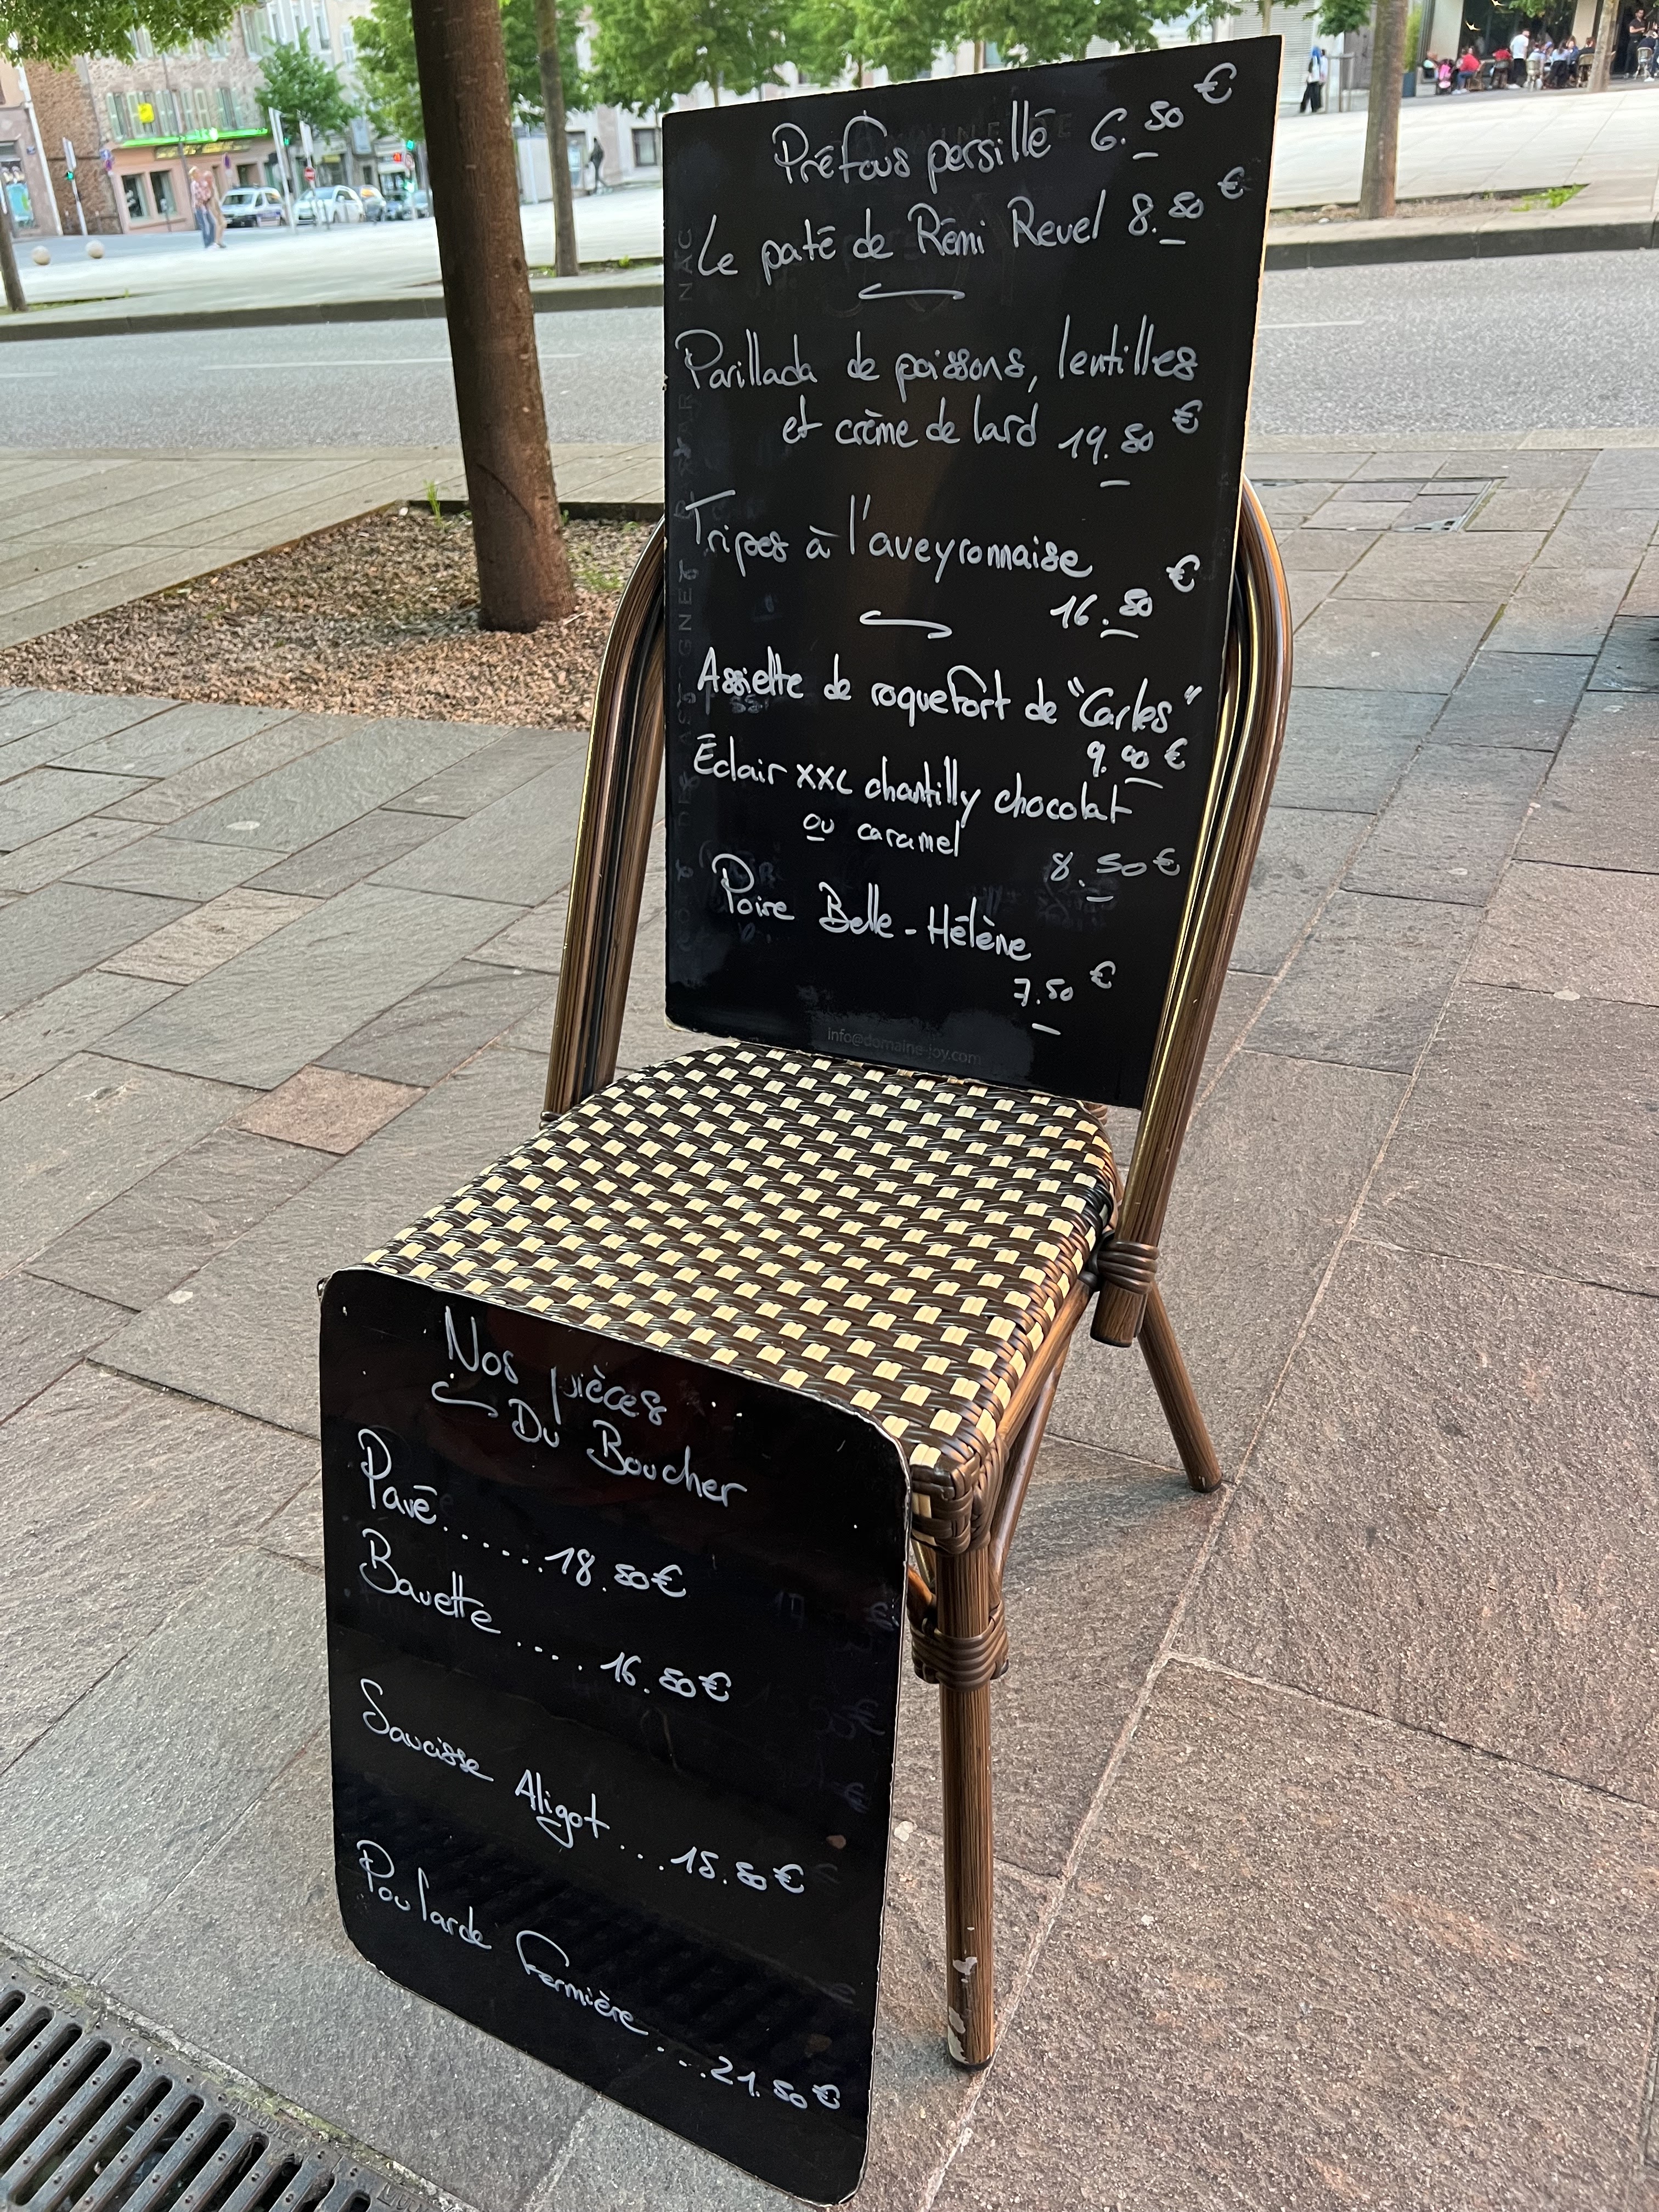 Préfous persillé 6.50 €
Le paté de Rémi Revel 8.50 €
Parillada de poissons, lentilles
et crème de lard 19.50 €
Tripes à l'aveyronnaise
16.50 €
Assiette de roquefort de "Carles"
9.00 €
Éclair XXL chantilly chocolat
ou caramel
8.50 €
Poire Belle-Hélène
7.50 €
info@domaine-joy.com
Nos pièces...
Du Boucher
Pavé......18.50€
Bavette.....16.50€
Saucisse Aligot...15.50€
Poularde Fermière...21.50€